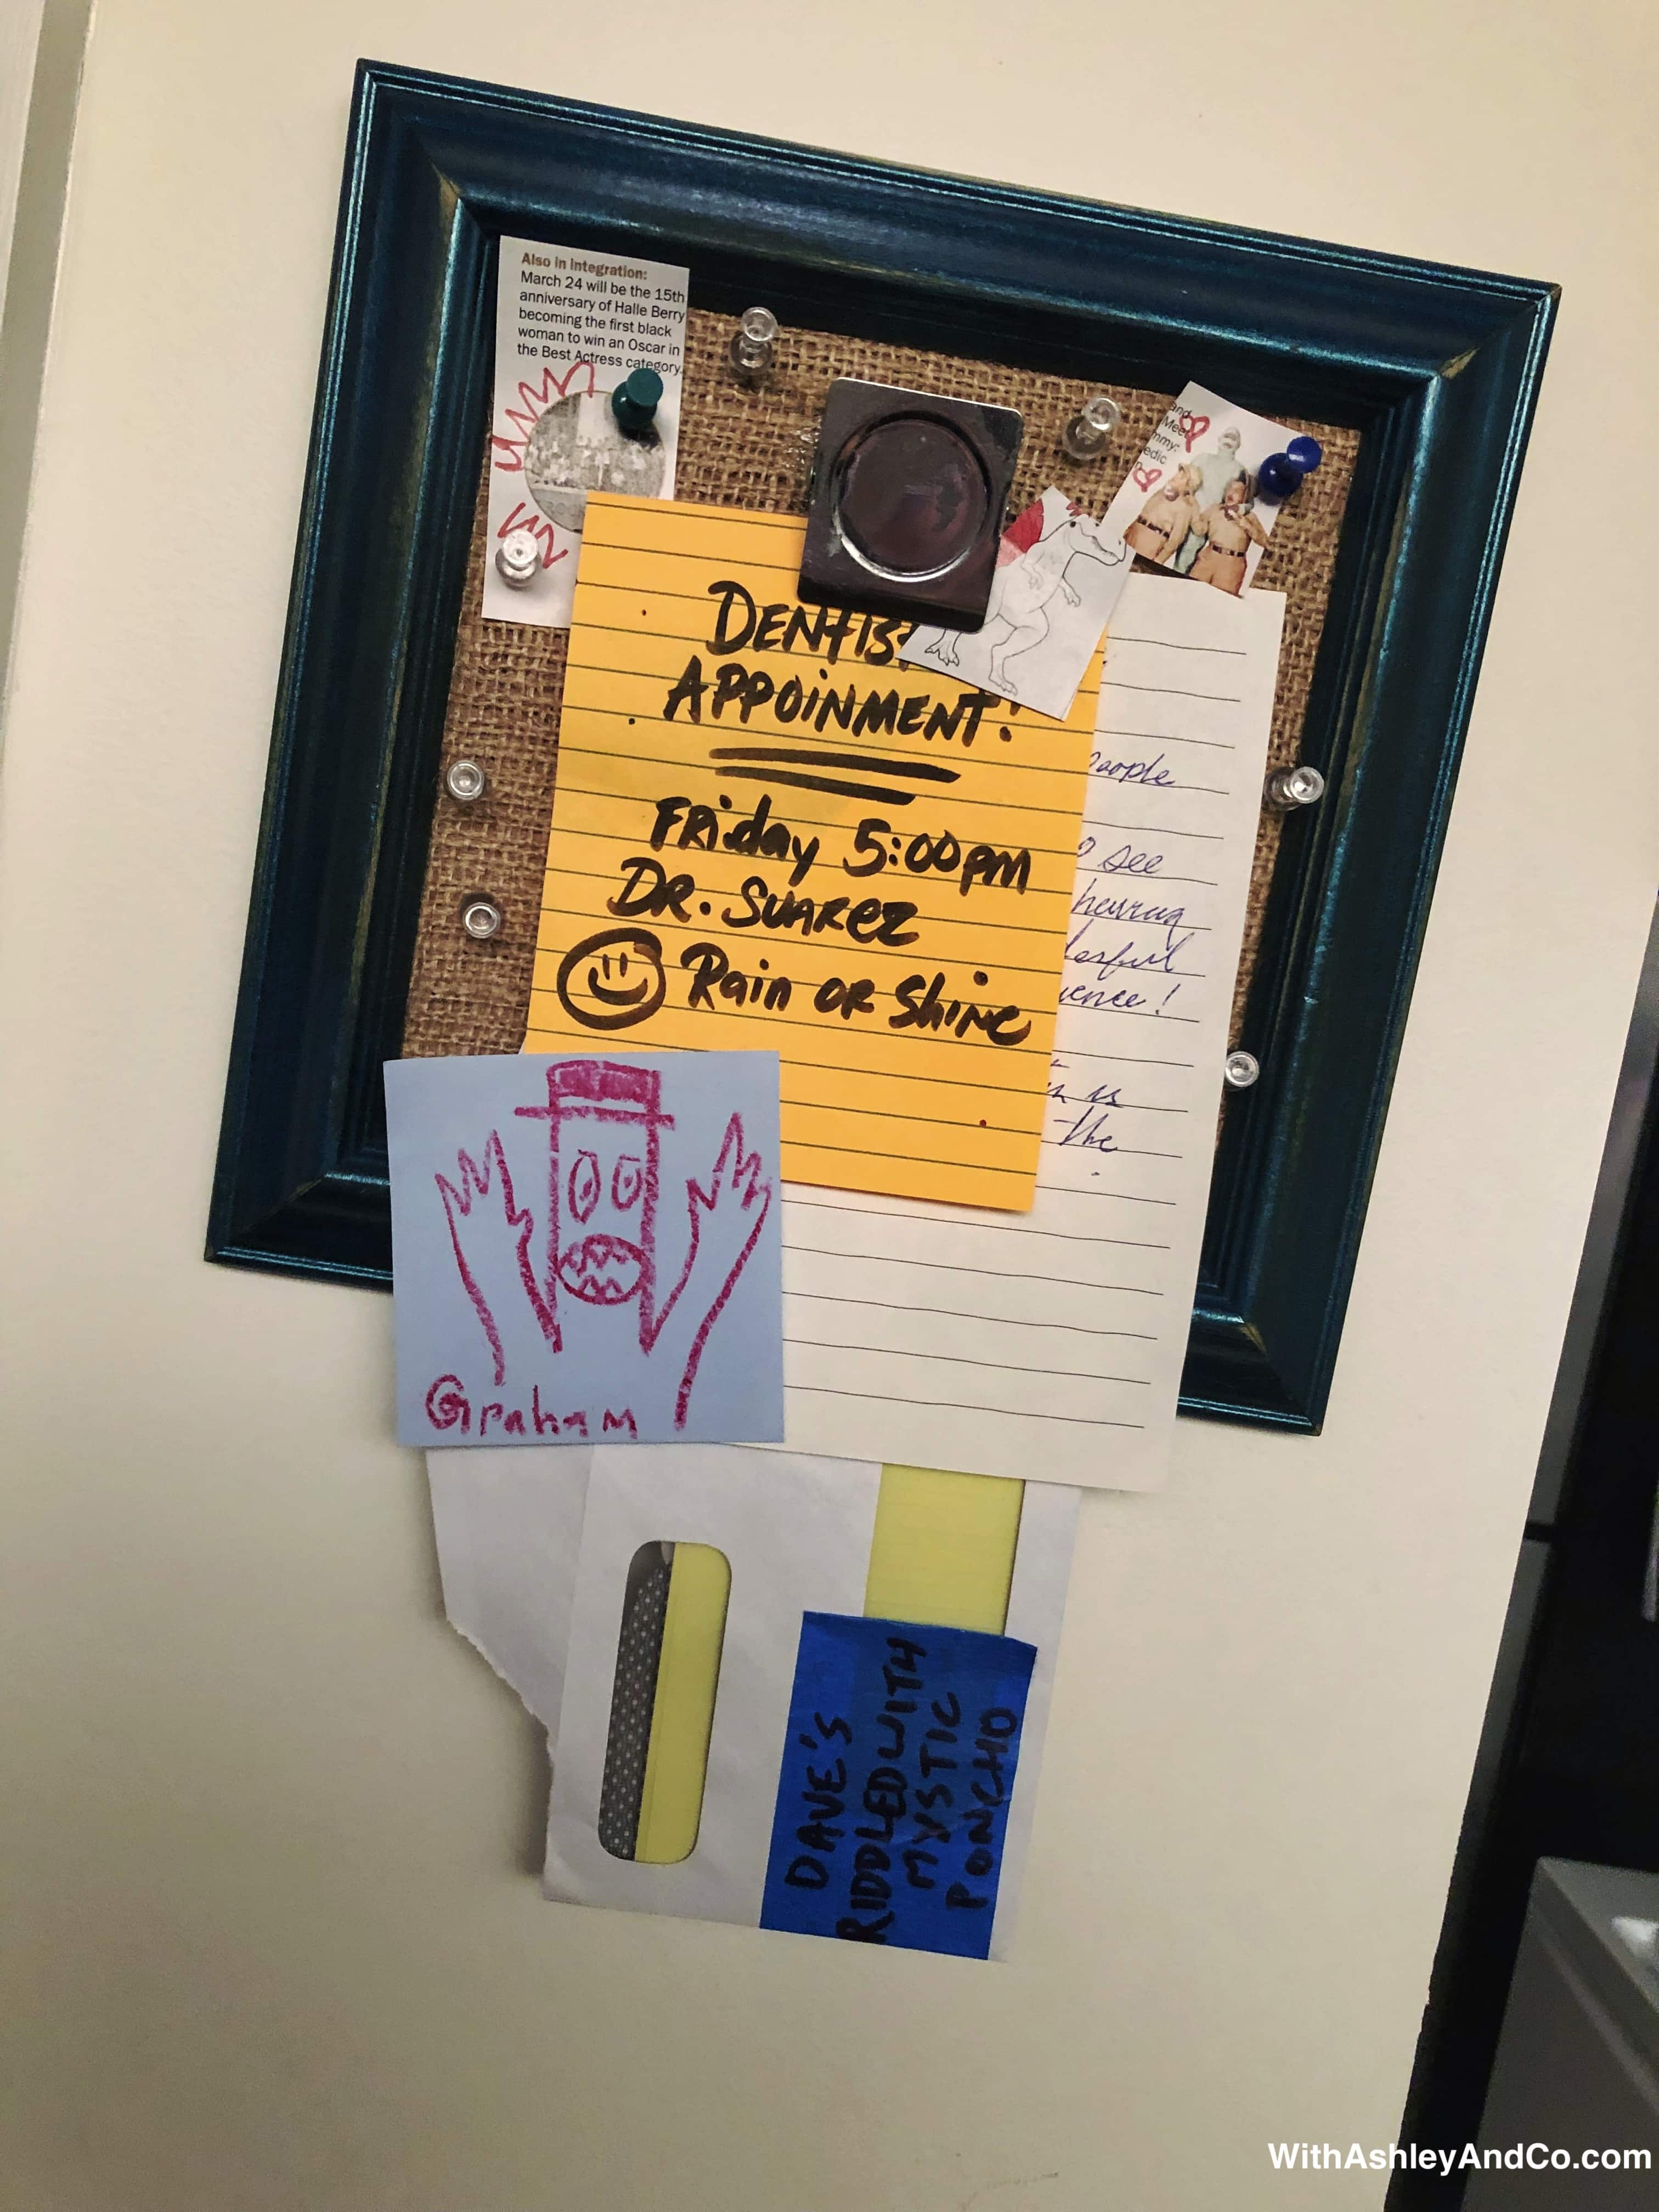 Also in Integration:
March 24 will be the 15th
anniversary of Halle Berry
becoming the first black
woman to win an Oscar in
the Best Actress category.
and
Meet
mmy:
edic
DENTIST
APPOINMENT!
Friday 5:00pm
DR. SUAREZ
Rain OR Shine
people
see
hearing
the
is
Graham
DAVE'S
RIDDLED WITH
MYSTIC
PONCHO
WithAshleyAndCo.com